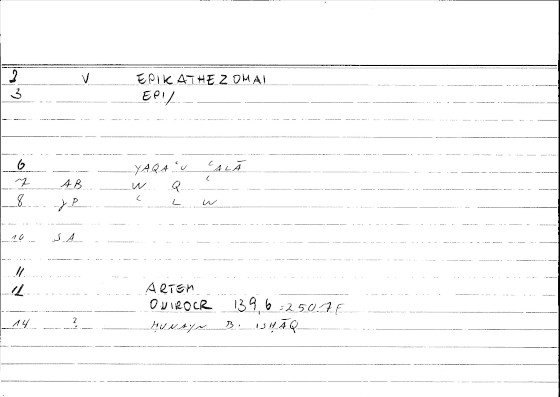 2 V EPIKATHEZOMAI
3 EPI/
6 YAQAʿU ʿALĀ
7 AB W Q ʿ
8 JP ʿ L W
10 SA
11
12 ARTEM
ONIROCR 139,6 = 250.7F
14 ? ḤUNAYN B. ISḤĀQ